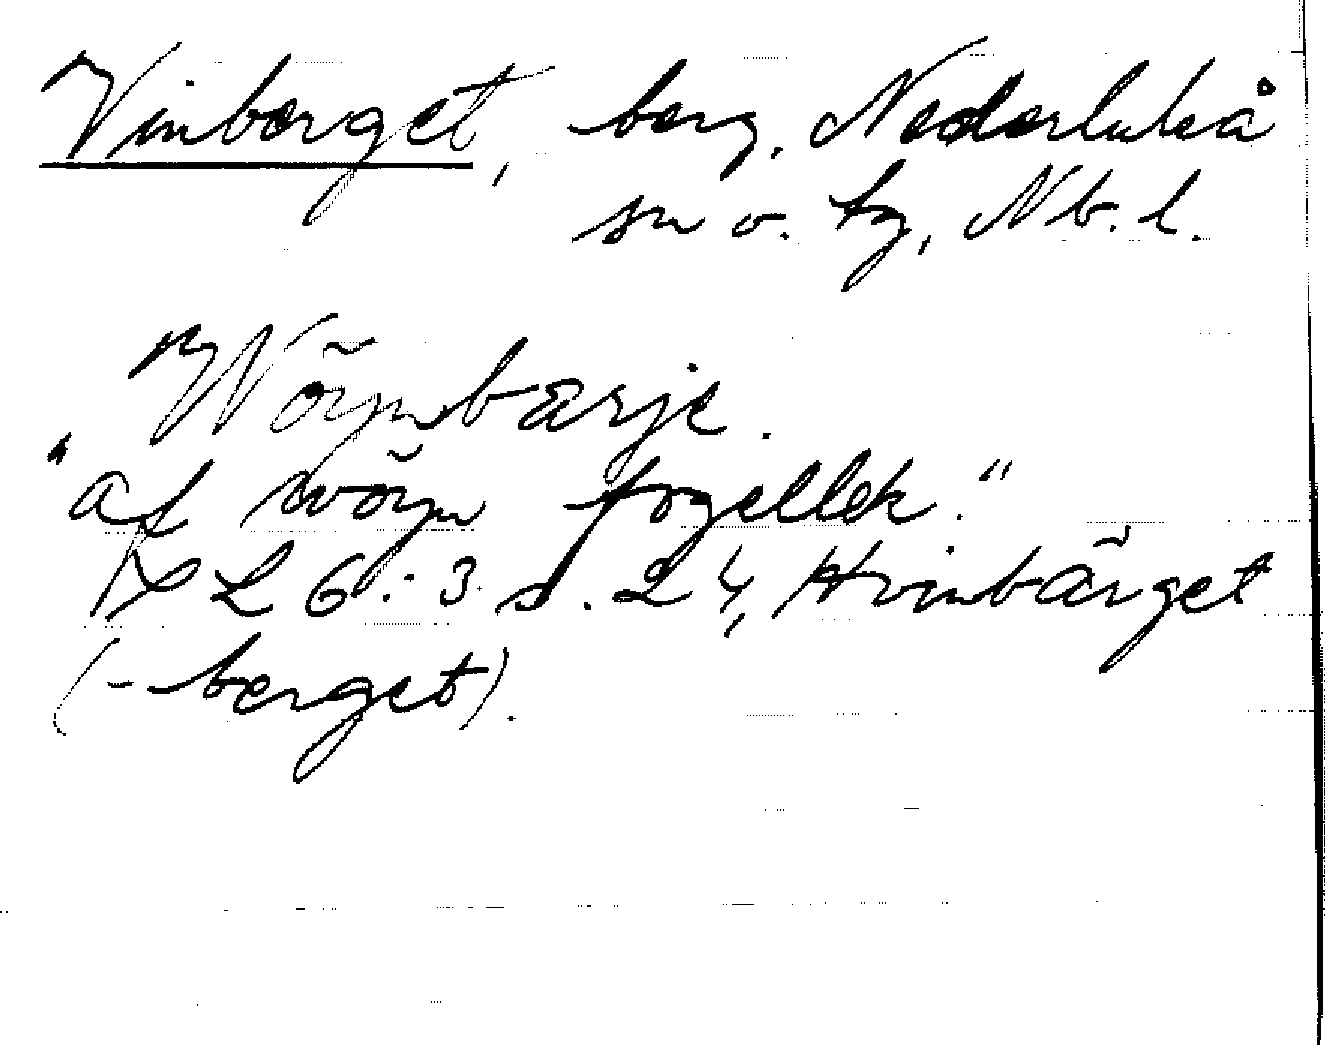 Vinberget, berg, Nederluleå
sn o. tg, Nb. l.
Wõynbarje.
"af wõyn fogellek."
L 6:3 s. 24, Hvinbãrget
(-berget).